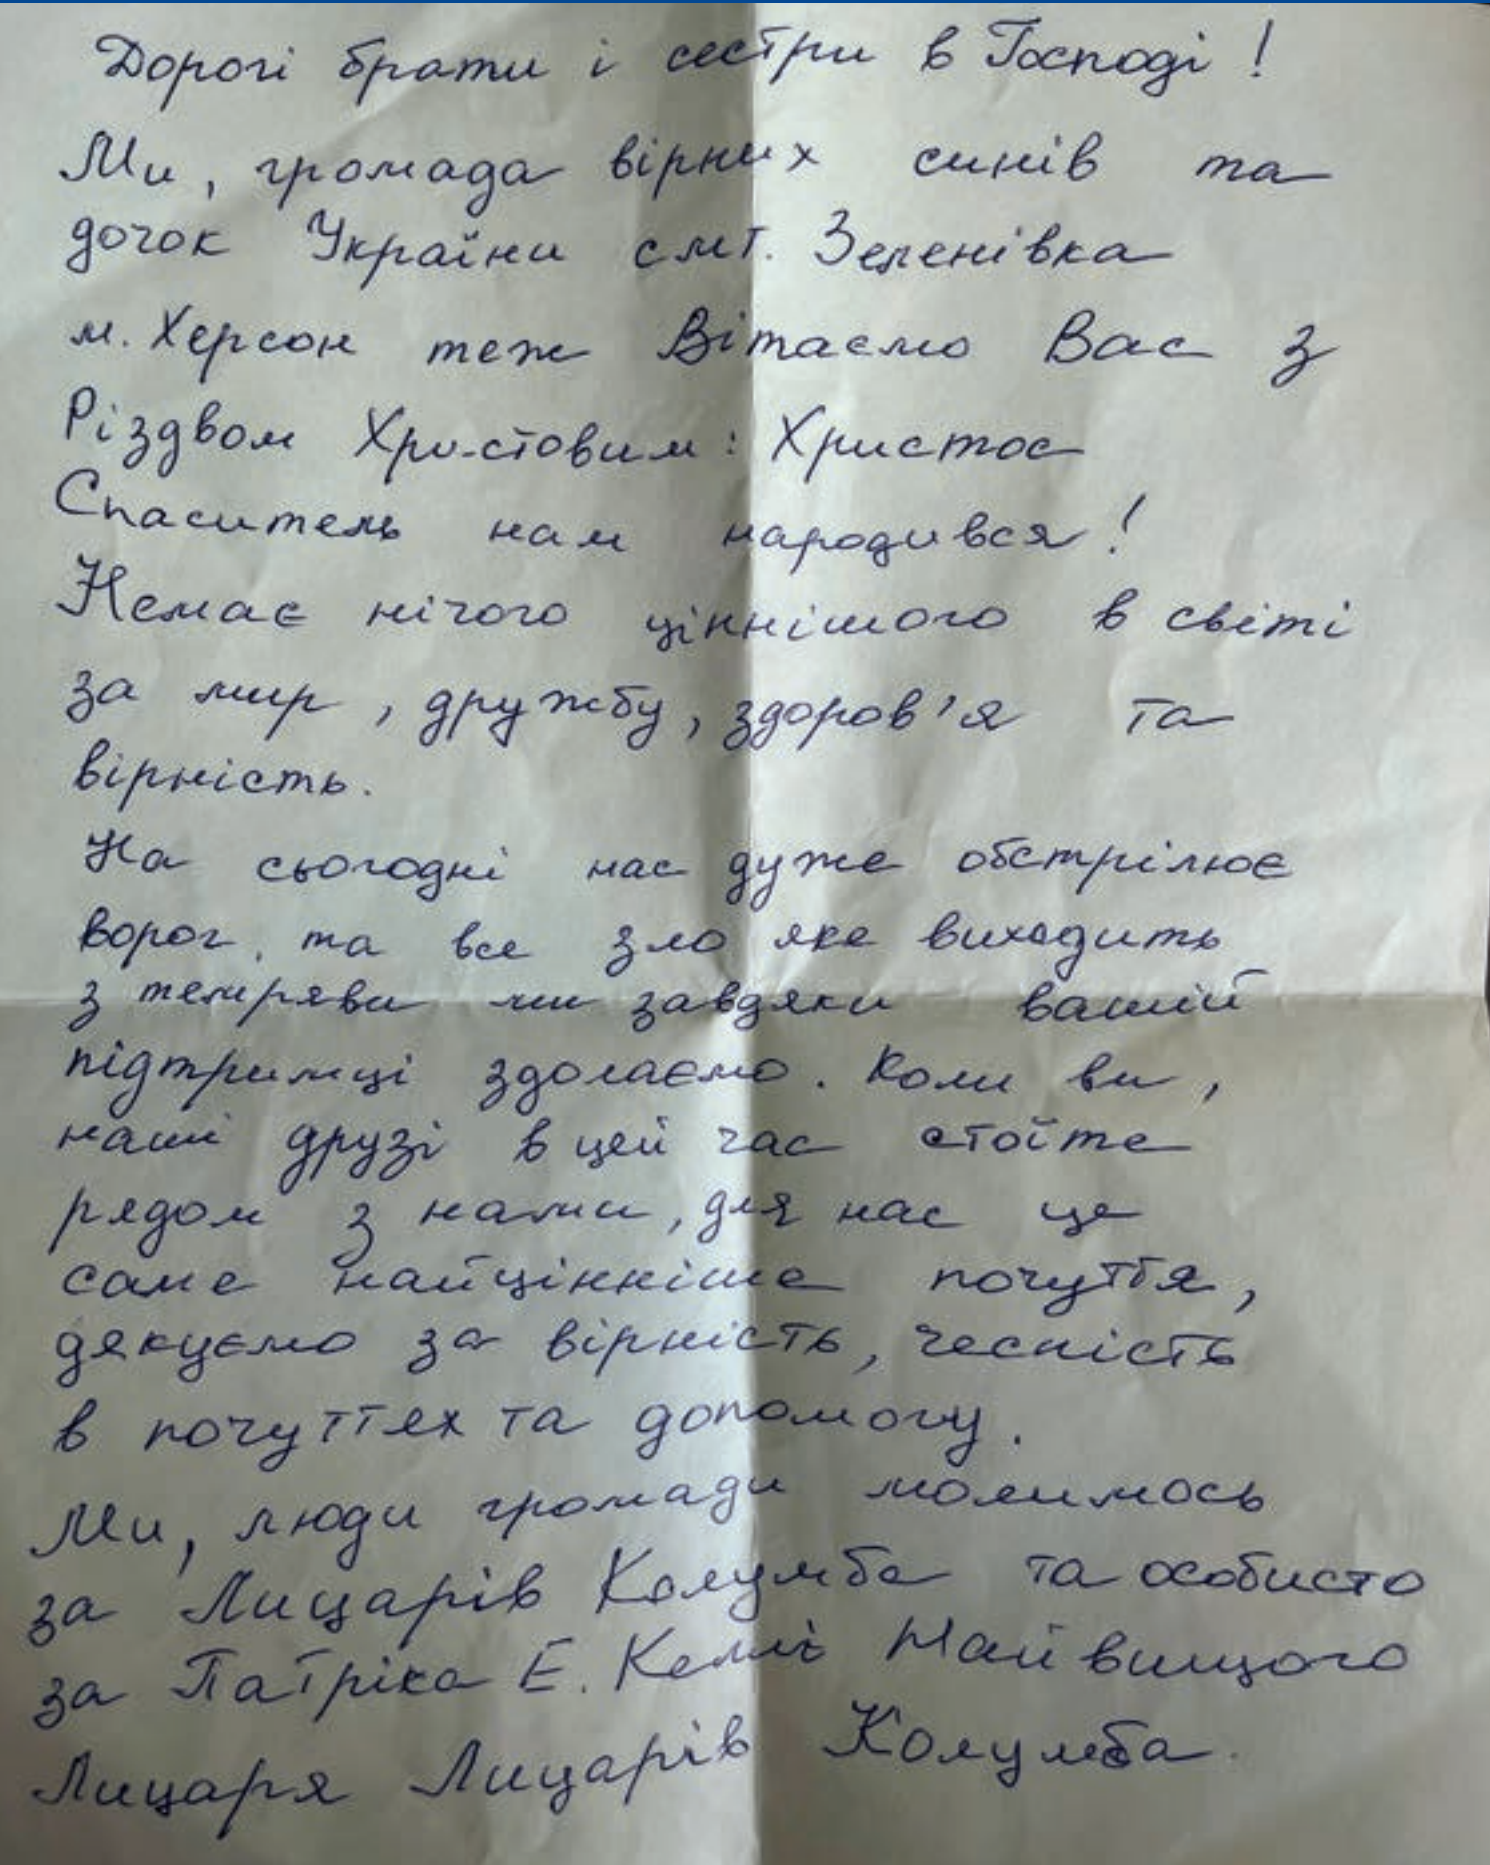 Дорогі брати і сестри в Господі!
Ми, громада вірних синів та
дочок України смт. Зеленівка
м. Херсон теж Вітаємо Вас з
Різдвом Христовим: Христос
Спаситель нам народився!
Немає нічого ціннішого в світі
за мир, дружбу, здоров'я та
вірність.
На сьогодні нас дуже обстрілює
ворог, та все зло яке виходить
з темряви ми завдяки вашій
підтримці здолаємо. Коли ви,
наші друзі в цей час стоїте
рядом з нами, для нас це
саме найцінніше почуття,
дякуємо за вірність, чесність
в почуттях та допомогу.
Ми, люди громади молимось
за Лицарів Колумба та особисто
за Патріка Е. Келлі Найвищого
Лицаря Лицарів Колумба.